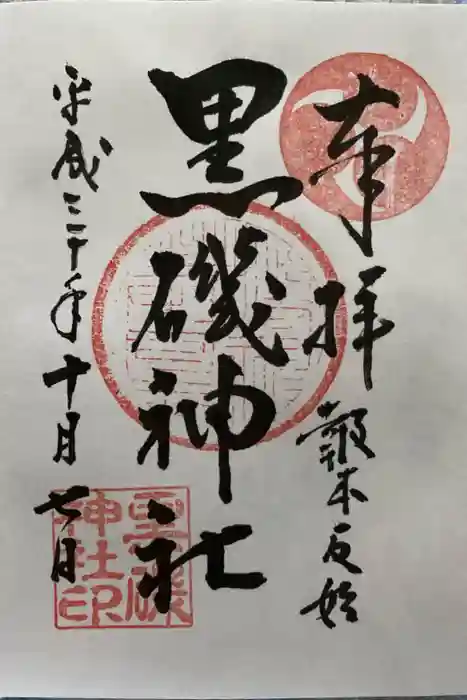 奉拝
報本反始
黒磯神社
平成三十年十月七日
黒磯
神社印